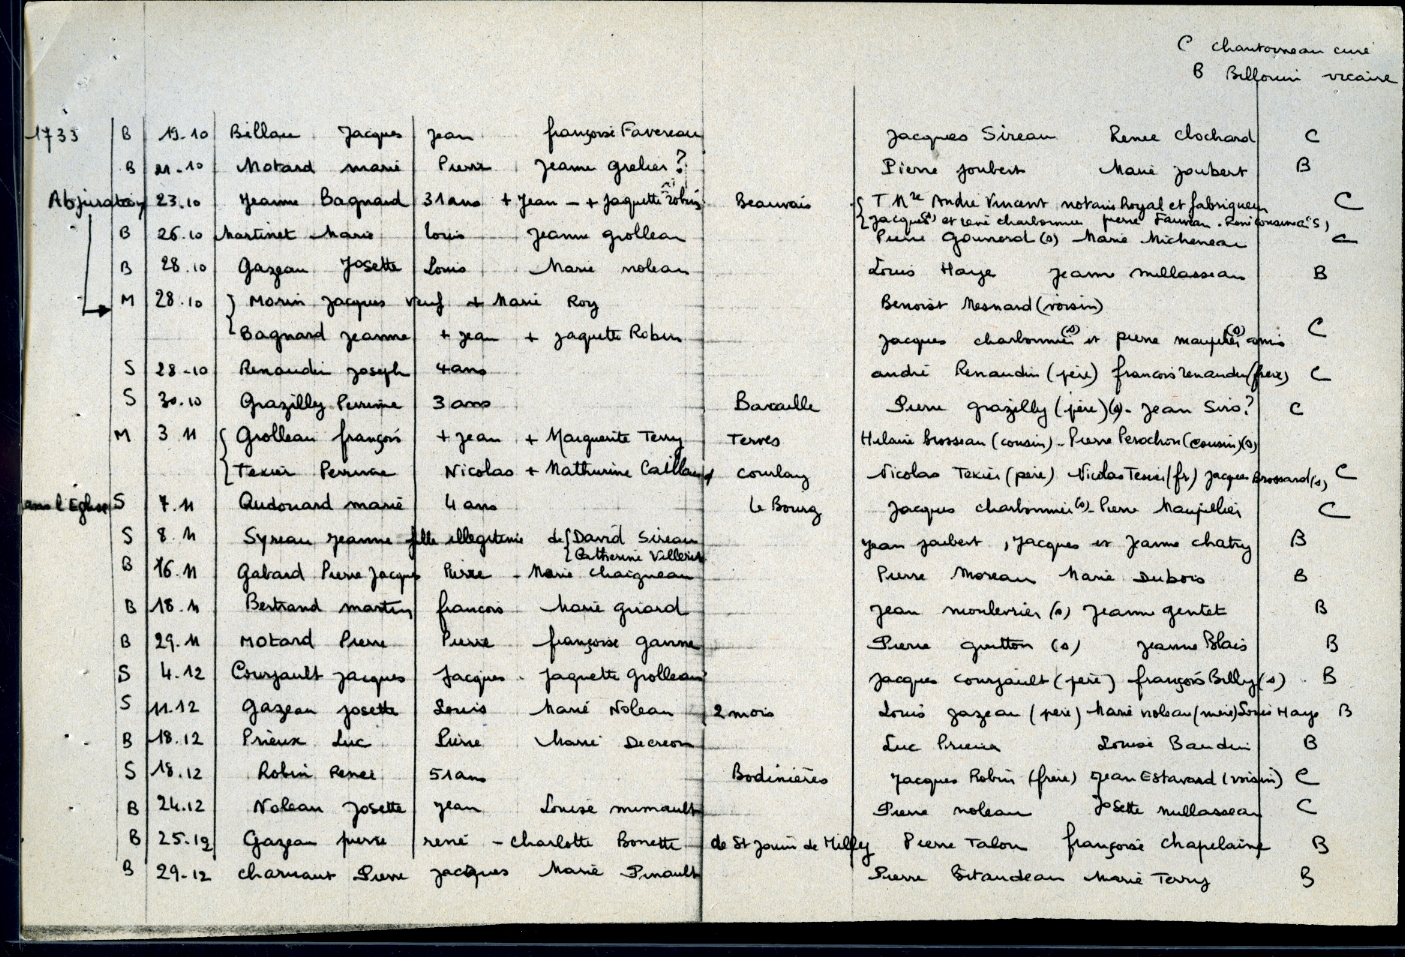 C chantonneau curé
B Billouin vicaire
1733 B 19.10 Billau Jacques Jean françoise Favereau Jacques Sireau Renée Clochard C
B 21.10 Motard marie Pierre Jeanne grelier ? Pierre Joubert Marie Joubert B
Abjuration 23.10 Jeanne Bagnard 31 ans + Jean - + Jaquette Robin Beauvais { T Me André Vincent notaire Royal et fabriqueur C
{ Jacques (s) et rené charbonnier pierre
B 26.10 Martinet Marie Louis Jeanne grolleau Pierre (s) Marie Micheneau C
B 28.10 Gazeau Josette Louis Marie noleau Louis Haye Jeanne millasseau B
M 28.10 { Morin Jacques veuf + Marie Roy Benoist Mesnard (voisin)
Bagnard Jeanne + Jean + Jaquette Robin Jacques charbonnier (s) et pierre maupilier (s) amis C
S 28-10 Renaudin Joseph 4 ans andré Renaudin (père) françois renaudin (frère) C
S 30.10 Grazilly Perrine 3 ans Pierre grazilly (père) (s) - Jean Siro ? C
M 3 11 { Grolleau françois + Jean + Marguerite Terry Terves Hilaire brosseau (cousin) - Pierre Perochon (cousin) (s)
Texier Perrine Nicolas + Mathurine Caillau Courlay Nicolas Texier (père) Nicolas Texier (fr) Jacques Brossard (s) C
dans l'Eglise S 7.11 Audouard marie 4 ans le Bourg Jacques charbonnier (s) - Pierre Maupillier C
S 8.11 Syreau Jeanne fille illegitime de { David Sireau Jean Joubert, Jacques et Jeanne chatry B
{ Catherine
B 16.11 Gabard Pierre Jacques Pierre - Marie chaigneau Pierre Moreau Marie Dubois B
B 18.11 Bertrand martin francois Marie girard Jean (s) Jeanne gentet B
B 29.11 Motard Pierre Pierre françoise Pierre guitton (s) Jeanne Blais B
S 4.12 Courjault Jacques Jacques - Jaquette grolleau Jacques courjault (père) françois Billy (s) . B
S 11.12 Gazeau Josette Louis Marie Noleau 2 mois Louis gazeau (père) Marie noleau (mère) Louis Haye B
B 18.12 Prieux Luc Pierre Marie Decron Luc Louise Baudin B
S 18.12 Robin René 51 ans Bodinières Jacques Robin (frère) Jean Estavard (voisin) C
B 24.12 Noleau Josette Jean Louise mimault Pierre noleau Josette millasseau C
B 25.12 Gazeau pierre rené - charlotte Bonette de St Jouin de Milly Pierre Talon françoise chapelaine B
B 29-12 charuaut Pierre jacques Marie Pinault Pierre Bitaudeau Marie Terry B